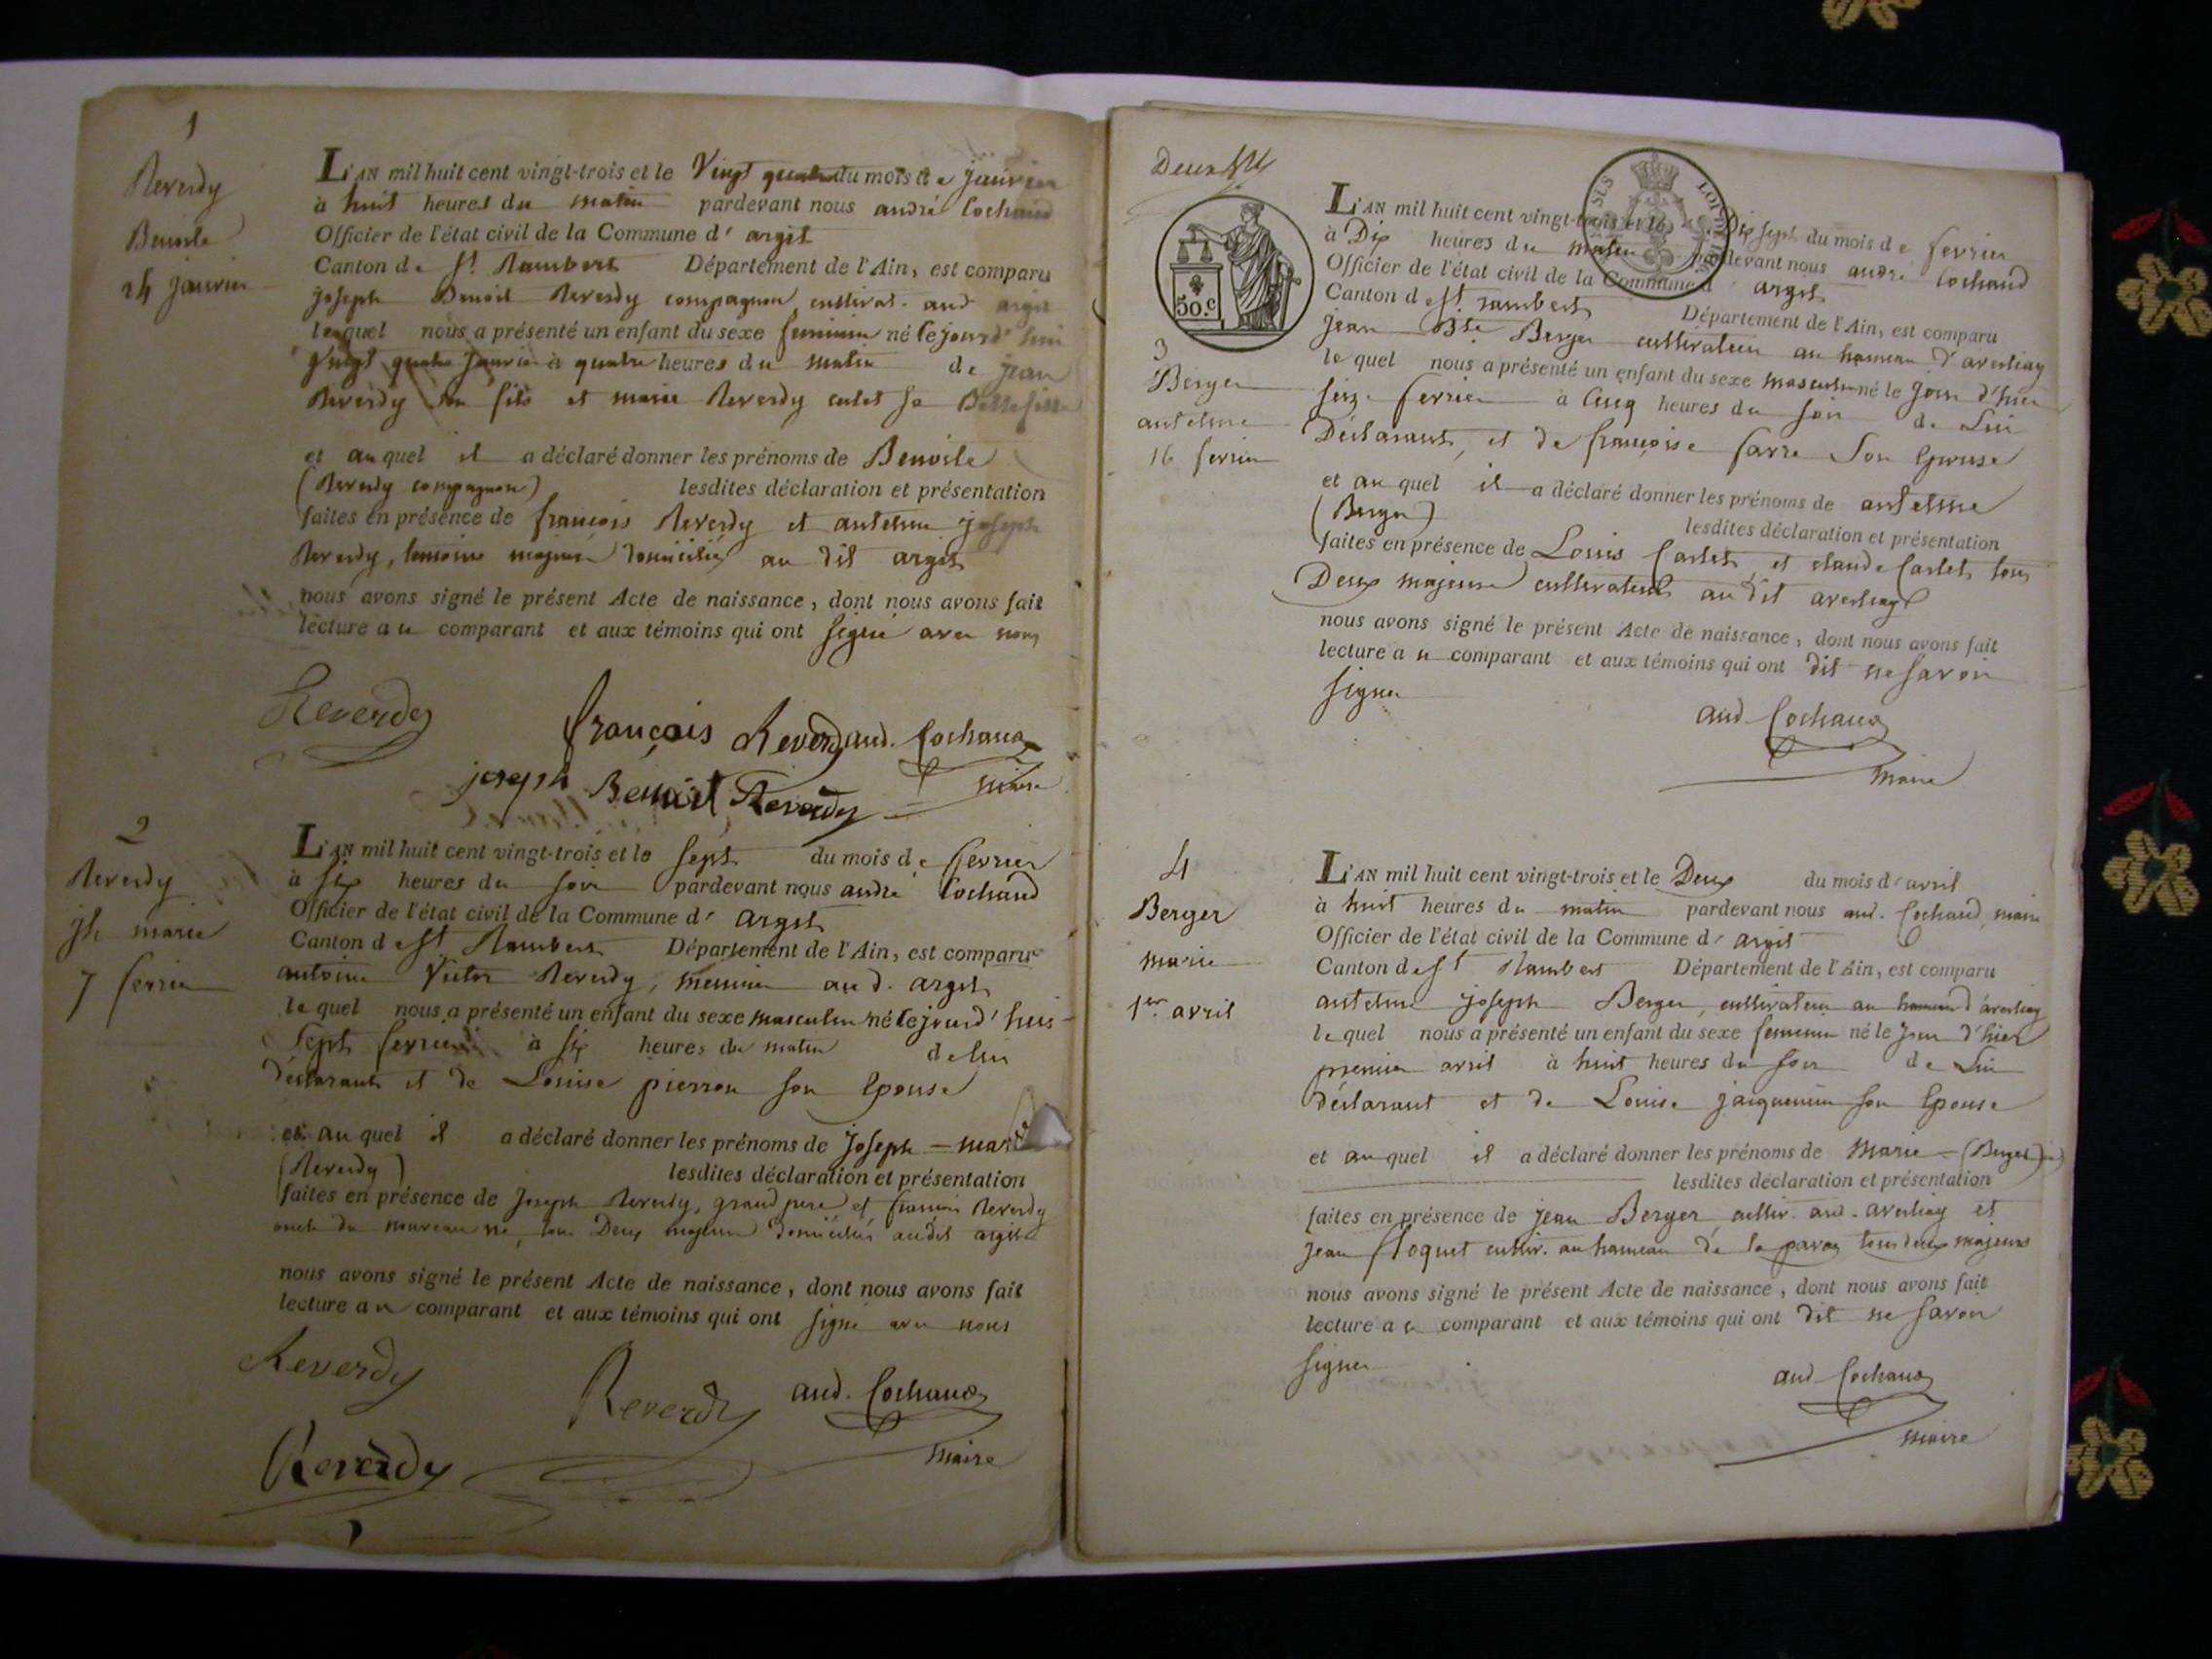 1
Reverdy
Benoite
24 janvier
L'AN mil huit cent vingt-trois et le Vingt quatre du mois de janvier
à huit heures du matin pardevant nous andré Cochaud
Officier de l'état civil de la Commune d' argis
Canton de St. Rambert Département de l'Ain, est comparu
joseph Benoit Reverdy compagnon cultivat. aud argis
lequel nous a présenté un enfant du sexe feminin né cejourd'hui
Vingt quatre janvier à quatre heures du matin de jean
Reverdy son fils et marie Reverdy culet sa Bellefille
et auquel il a déclaré donner les prénoms de Benoite
(Reverdy compagnon) lesdites déclaration et présentation
faites en présence de françois Reverdy et antelme joseph
Reverdy, temoins majeurs domiciliés au dit argis
nous avons signé le présent Acte de naissance, dont nous avons fait
lecture au comparant et aux témoins qui ont signé avec nous
Reverdy
françois Reverdy aud. Cochaud
joseph Benoit Reverdy maire
2
Reverdy
jh marie
7 fevrier
L'AN mil huit cent vingt-trois et le sept du mois de fevrier
à six heures du soir pardevant nous andré Cochaud
Officier de l'état civil de la Commune d' argis
Canton de St Rambert Département de l'Ain, est comparu
antoine Victor Reverdy, meunier aud. argis
le quel nous a présenté un enfant du sexe masculin né cejourd'hui
Sept fevrier à six heures du matin de lui
déclarant et de Louise pierron son Epouse
et auquel il a déclaré donner les prénoms de joseph = marie
(Reverdy) lesdites déclaration et présentation
faites en présence de Joseph Reverdy, grand pere et francois Reverdy
oncle du nouveau né, tous Deux majeurs domiciliés audit argis
nous avons signé le présent Acte de naissance, dont nous avons fait
lecture au comparant et aux témoins qui ont signé avec nous
Reverdy
Reverdy aud. Cochaud
Reverdy maire
Deux
50.c
3
Berger
antelme
16 fevrier
L'AN mil huit cent vingt-trois et le Dix sept du mois de fevrier
à Dix heures du matin pardevant nous andré Cochaud
Officier de l'état civil de la Commune d' argis
Canton de St rambert Département de l'Ain, est comparu
jean Bte Berger cultivateur au hameau d'averliaz
le quel nous a présenté un enfant du sexe masculin né le Jour d'hier
seize fevrier à Cinq heures du soir de Lui
Déclarant, et de françoise farre Son Epouse
et auquel il a déclaré donner les prénoms de antelme
(Berger) lesdites déclaration et présentation
faites en présence de Louis Carlet, et claude Carlet tous
Deux majeurs cultivateurs audit averliaz
nous avons signé le présent Acte de naissance, dont nous avons fait
lecture au comparant et aux témoins qui ont dit ne savoir
signer
aud Cochaud
maire
4
Berger
marie
1er avril
L'AN mil huit cent vingt-trois et le Deux du mois d'avril
à huit heures du matin pardevant nous and. Cochaud, maire
Officier de l'état civil de la Commune d' argis
Canton de St Rambert Département de l'Ain, est comparu
antelme joseph Berger, cultivateur au hameau d'averliaz
le quel nous a présenté un enfant du sexe feminin né le Jour d'hier
premier avril à huit heures du soir de Lui
déclarant et de Louise jacquemin son Epouse
et auquel il a déclaré donner les prénoms de Marie = (Berger)
lesdites déclaration et présentation
faites en présence de jean Berger cultiv. aud. averliaz et
jean floquet cultiv. au hameau de la paraz tous deux majeurs
nous avons signé le présent Acte de naissance, dont nous avons fait
lecture au comparant et aux témoins qui ont dit ne savoir
signer
aud Cochaud
maire